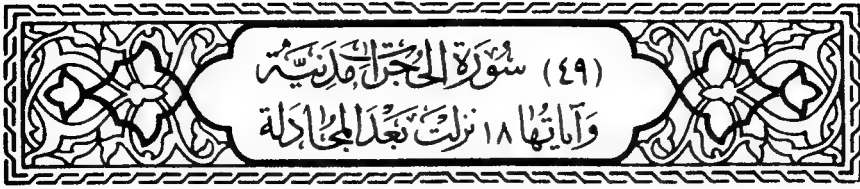 (٤٩) سُورَة الحُجُرَات مَدَنِيَّة
وَآيَاتُهَا ١٨ نَزَلَتْ بَعْدَ المُجَادَلَة